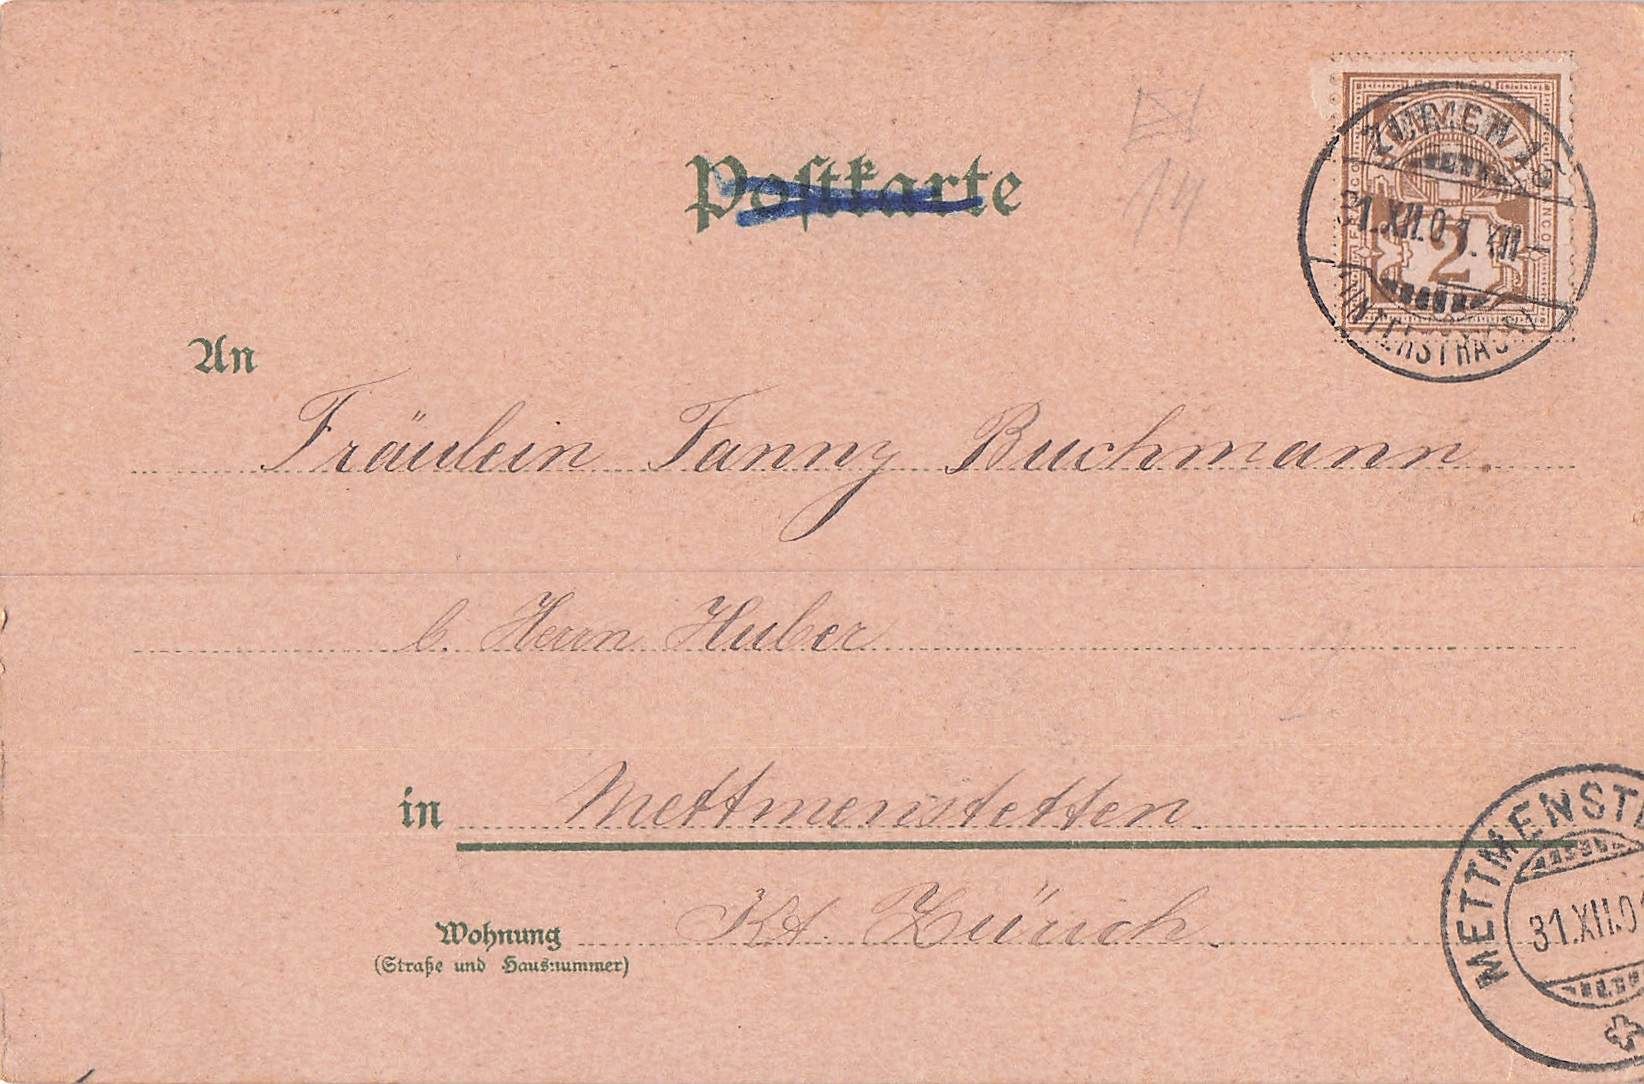 Postkarte
14
2
1.XII.0
UNTERSTRASS
An
Fräulein Fanny Buchmann.
b. Herrn Huber
in Mettmenstetten.
Kt. Zürich.
Wohnung
(Straße und Hausnummer)
METTMENST
31.XII.01